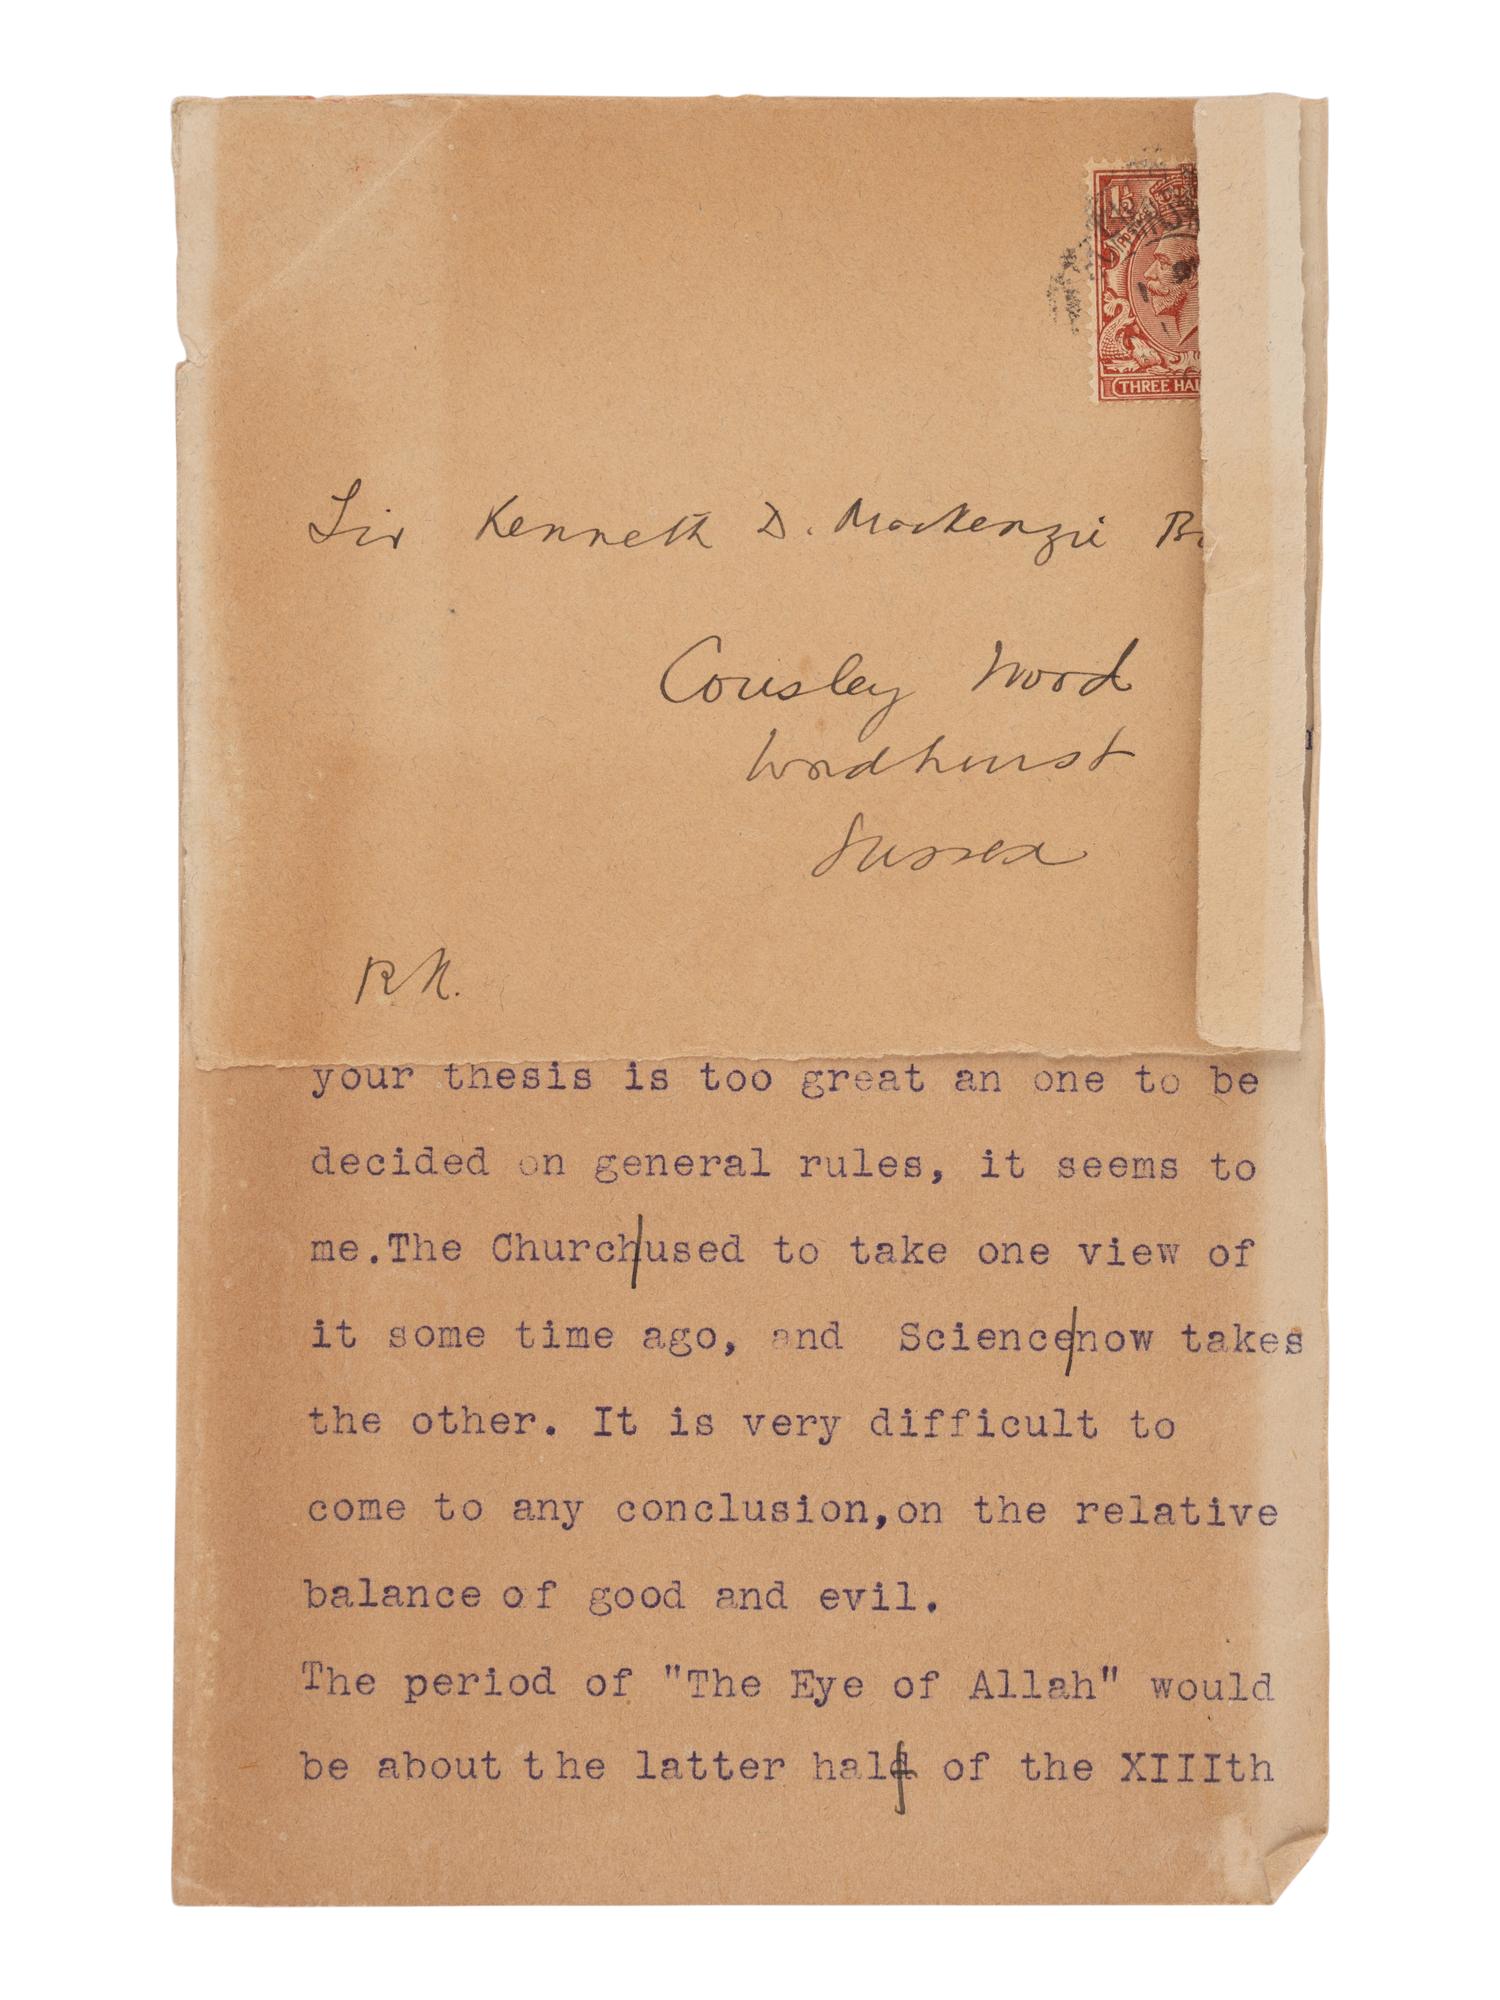 1½
THREE HAL
Sir Kenneth D. Mackenzie B
Cousley Wood
Wadhurst
Sussex
R.K.
your thesis is too great an one to be
decided on general rules, it seems to
me.The Church/used to take one view of
it some time ago, and Science/now takes
the other. It is very difficult to
come to any conclusion,on the relative
balance of good and evil.
The period of "The Eye of Allah" would
be about the latter half of the XIIIth